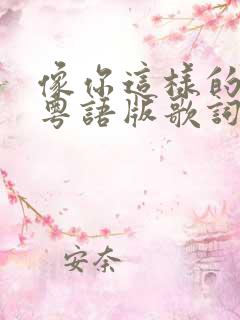 像你這樣的
粵語版歌詞
安奈